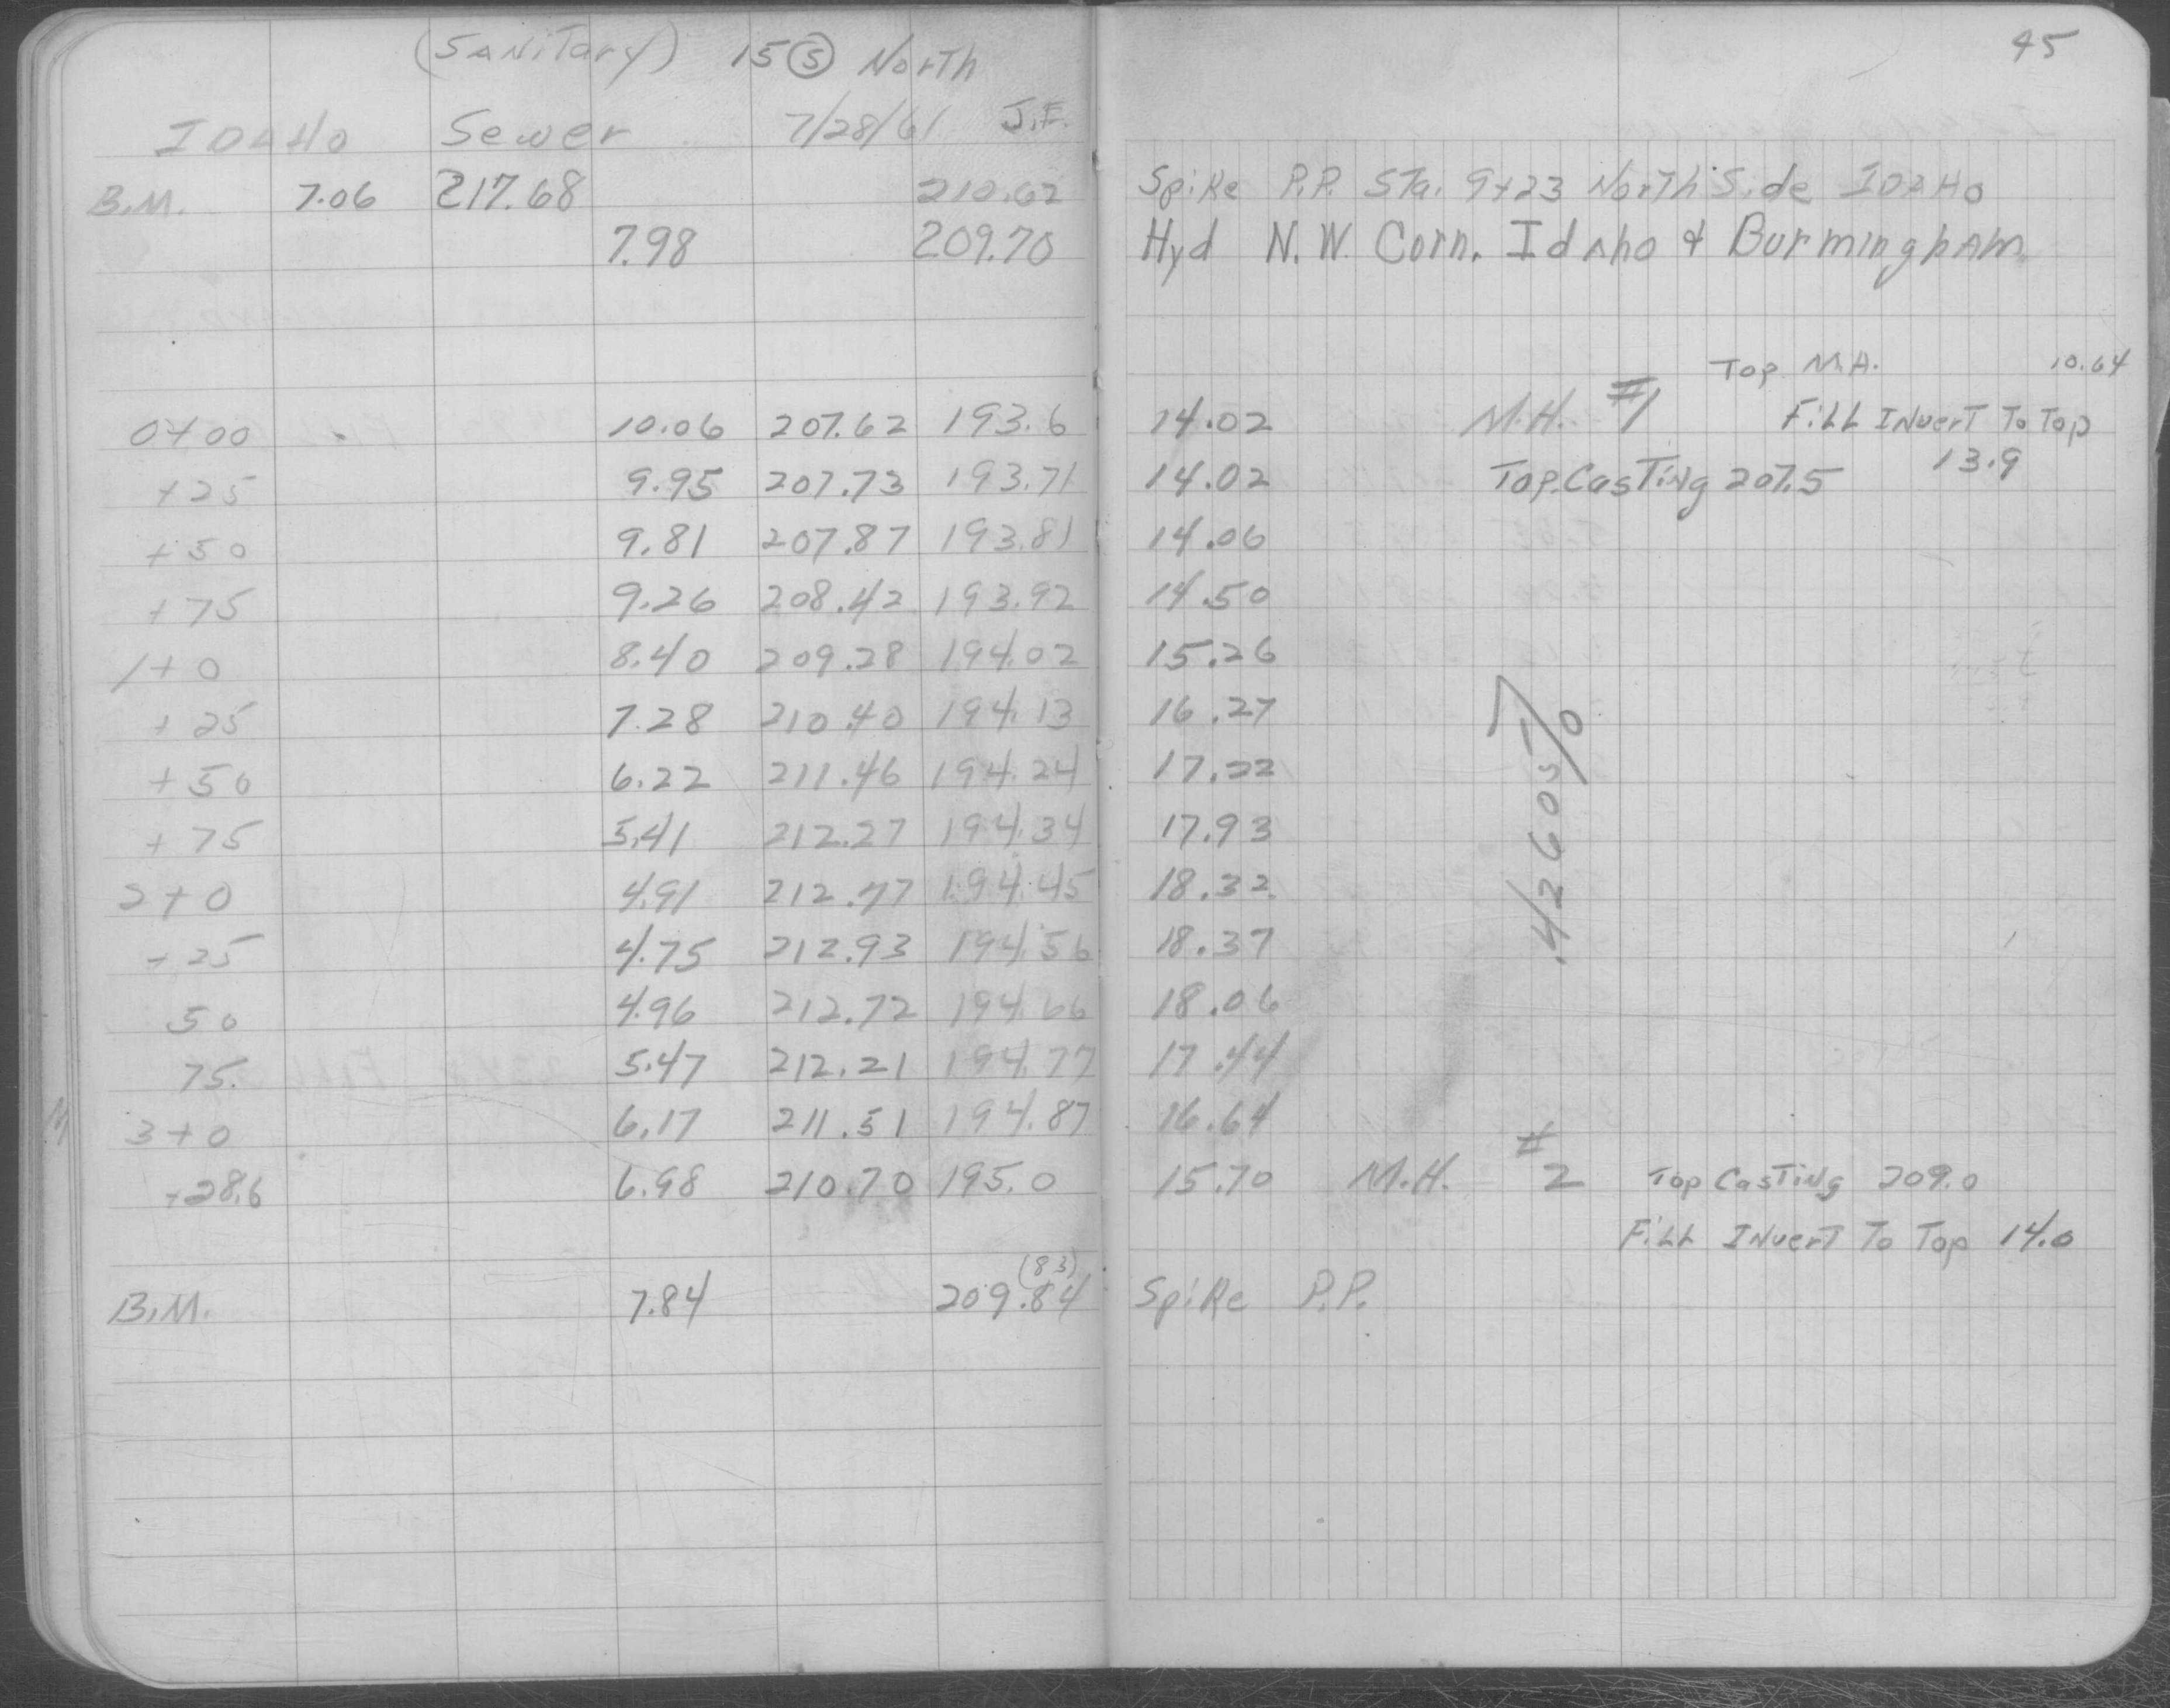 45
(Sanitary) 15 Ⓢ North
Idaho Sewer 7/28/61 J.E.
B.M. 7.06 217.68 210.62 Spike P.P. Sta. 9+23 North Side Idaho
7.98 209.70 Hyd N.W. Corn. Idaho & Burmingham
Top M.H. 10.64
0+00 10.06 207.62 193.6 14.02 M.H. #1 Fill Invert To Top
+25 9.95 207.73 193.71 14.02 Top Casting 207.5 13.9
+50 9.81 207.87 193.81 14.06
+75 9.26 208.42 193.92 14.50
1+0 8.40 209.28 194.02 15.26
+25 7.28 210.40 194.13 16.27
+50 6.22 211.46 194.24 17.22
+75 5.41 212.27 194.34 17.93
2+0 4.91 212.77 194.45 18.32
+25 4.75 212.93 194.56 18.37
50 4.96 212.72 194.66 18.06
75. 5.47 212.21 194.77 17.44
3+0 6.17 211.51 194.87 16.64
+28.6 6.98 210.70 195.0 15.70 M.H. #2 Top Casting 209.0
Fill Invert To Top 14.0
(83)
B.M. 7.84 209.84 Spike P.P.
.42605%